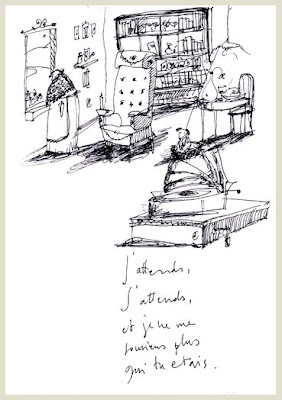 J'attends,
J'attends,
et je ne me
souviens plus
qui tu etais.